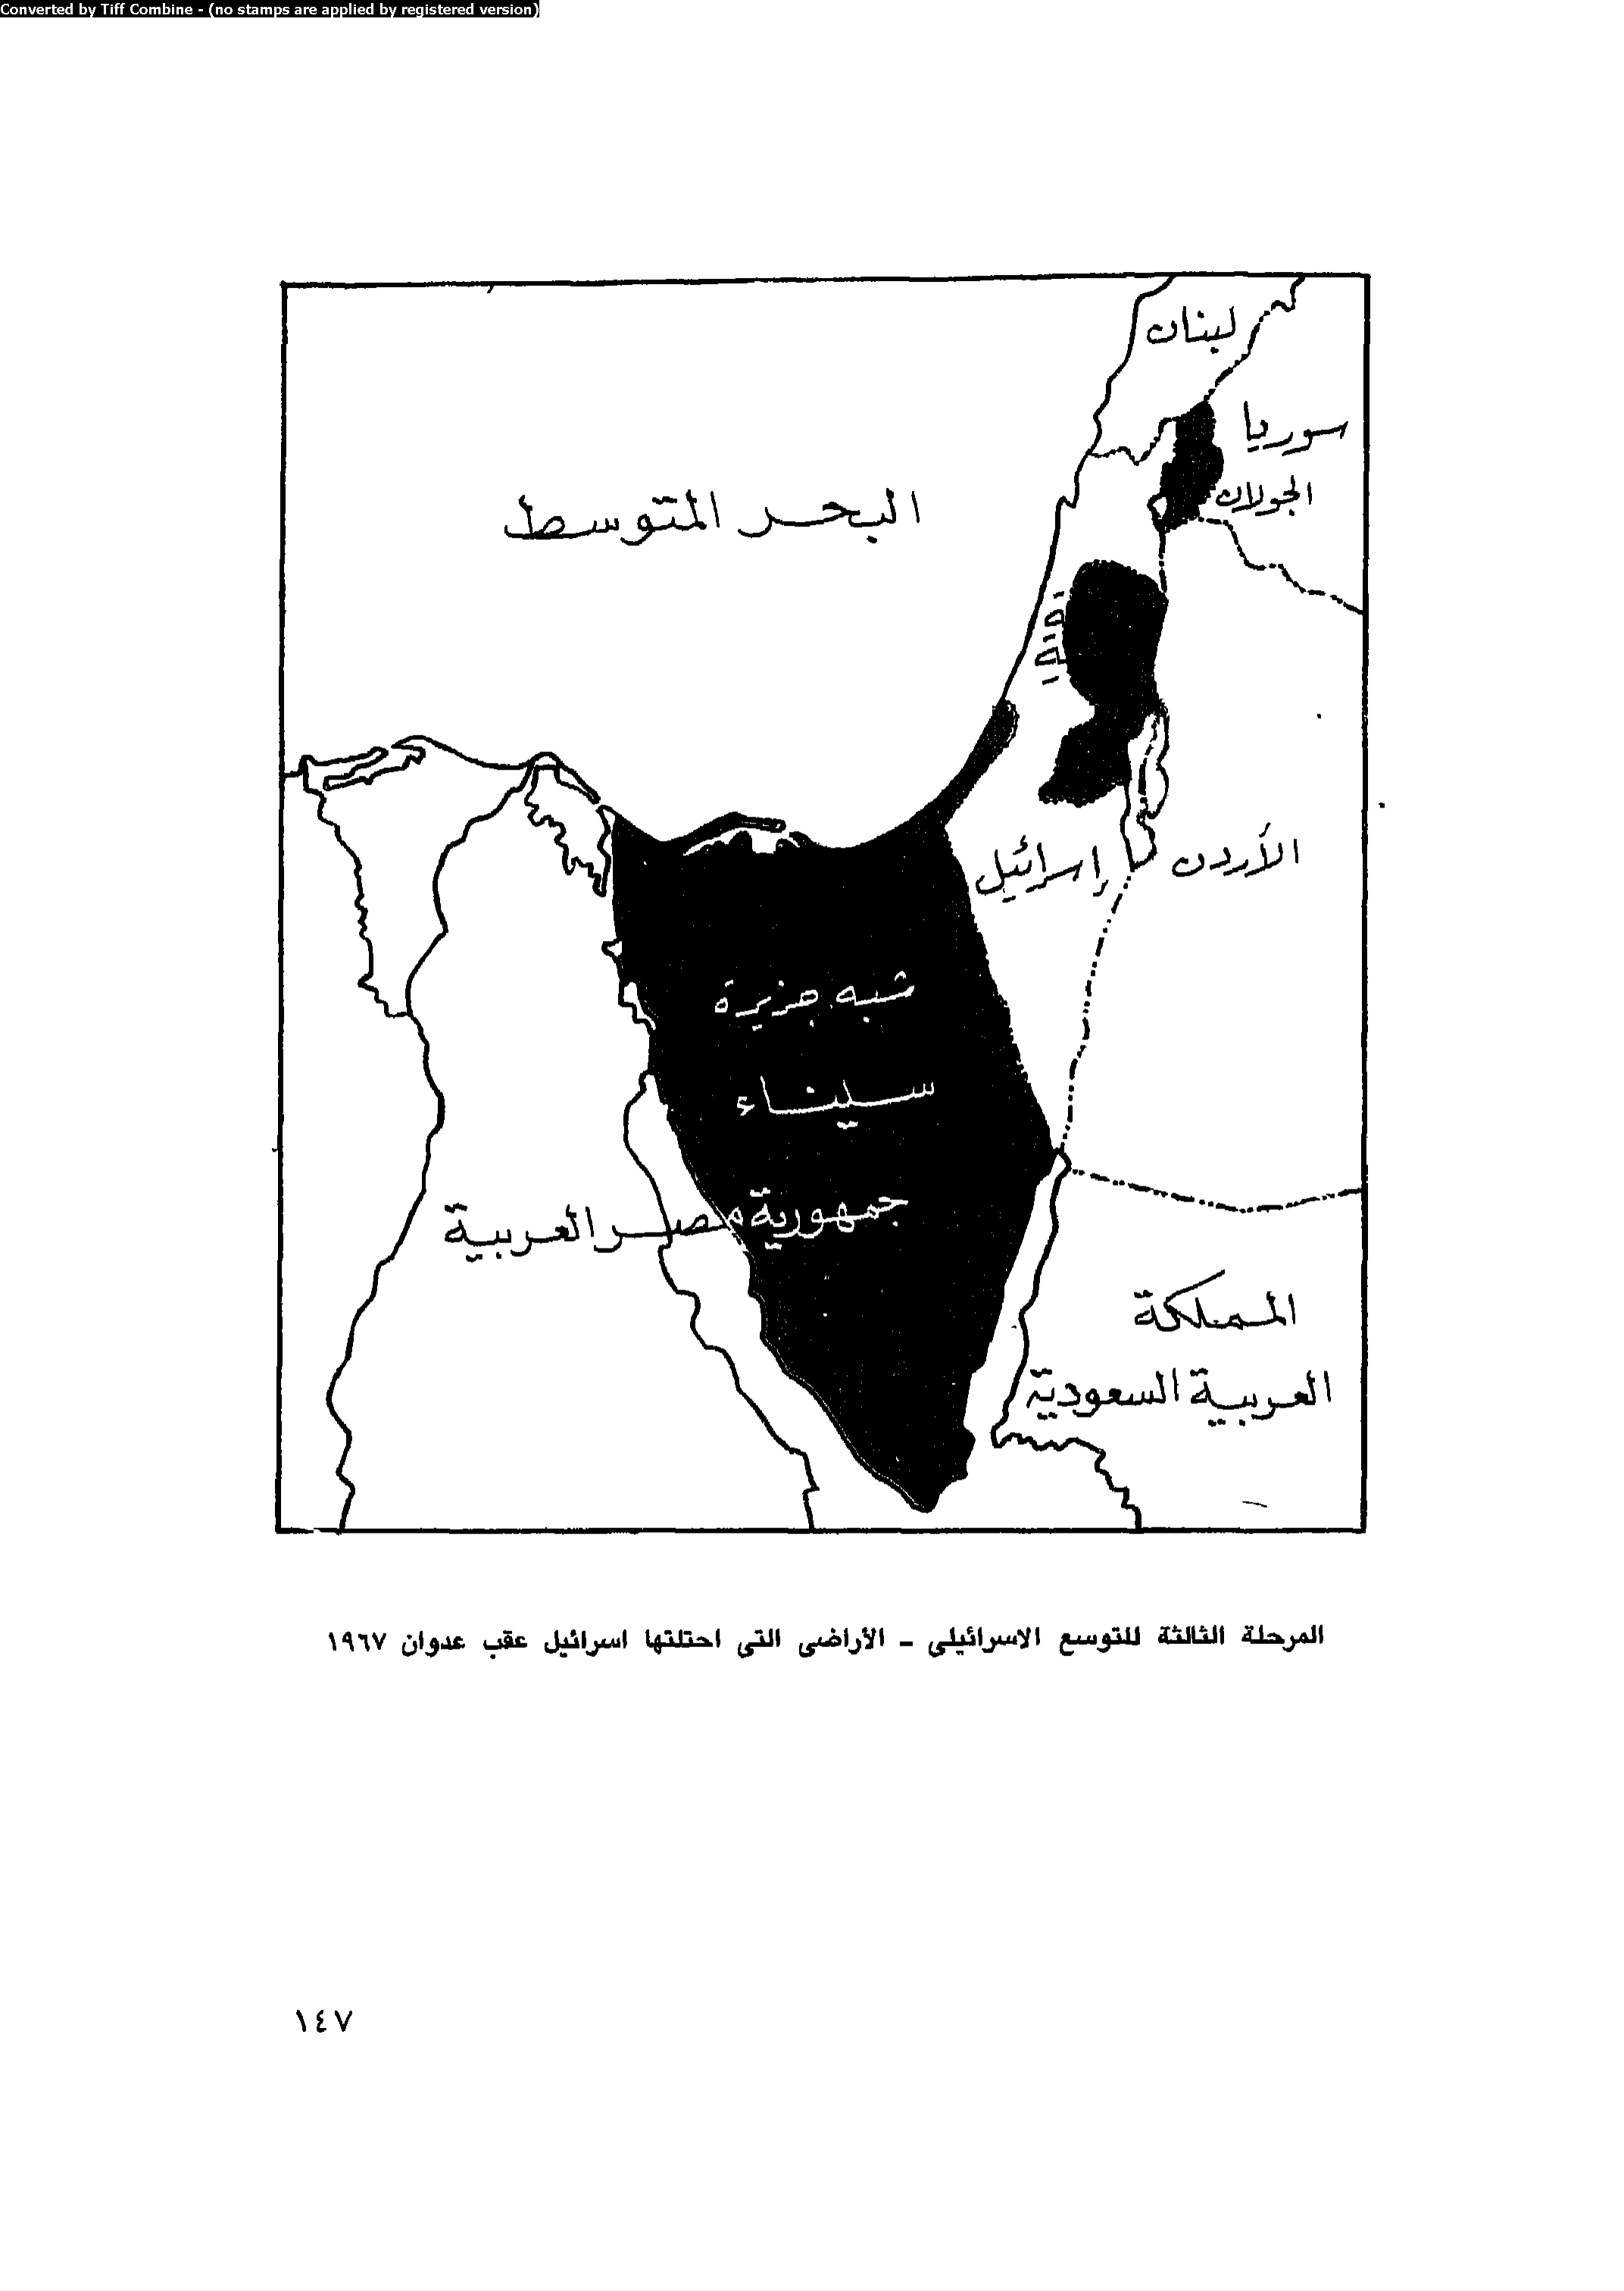 Converted by Tiff Combine - (no stamps are applied by registered version)
لبنان
سوريا
الجولان
البحر المتوسط
إسرائيل
الأردن
شبه جزيرة
سيناء
جمهورية مصر العربية
المملكة
العربية السعودية
المرحلة الثالثة للتوسع الاسرائيلى – الأراضى التى احتلتها اسرائيل عقب عدوان ١٩٦٧
١٤٧